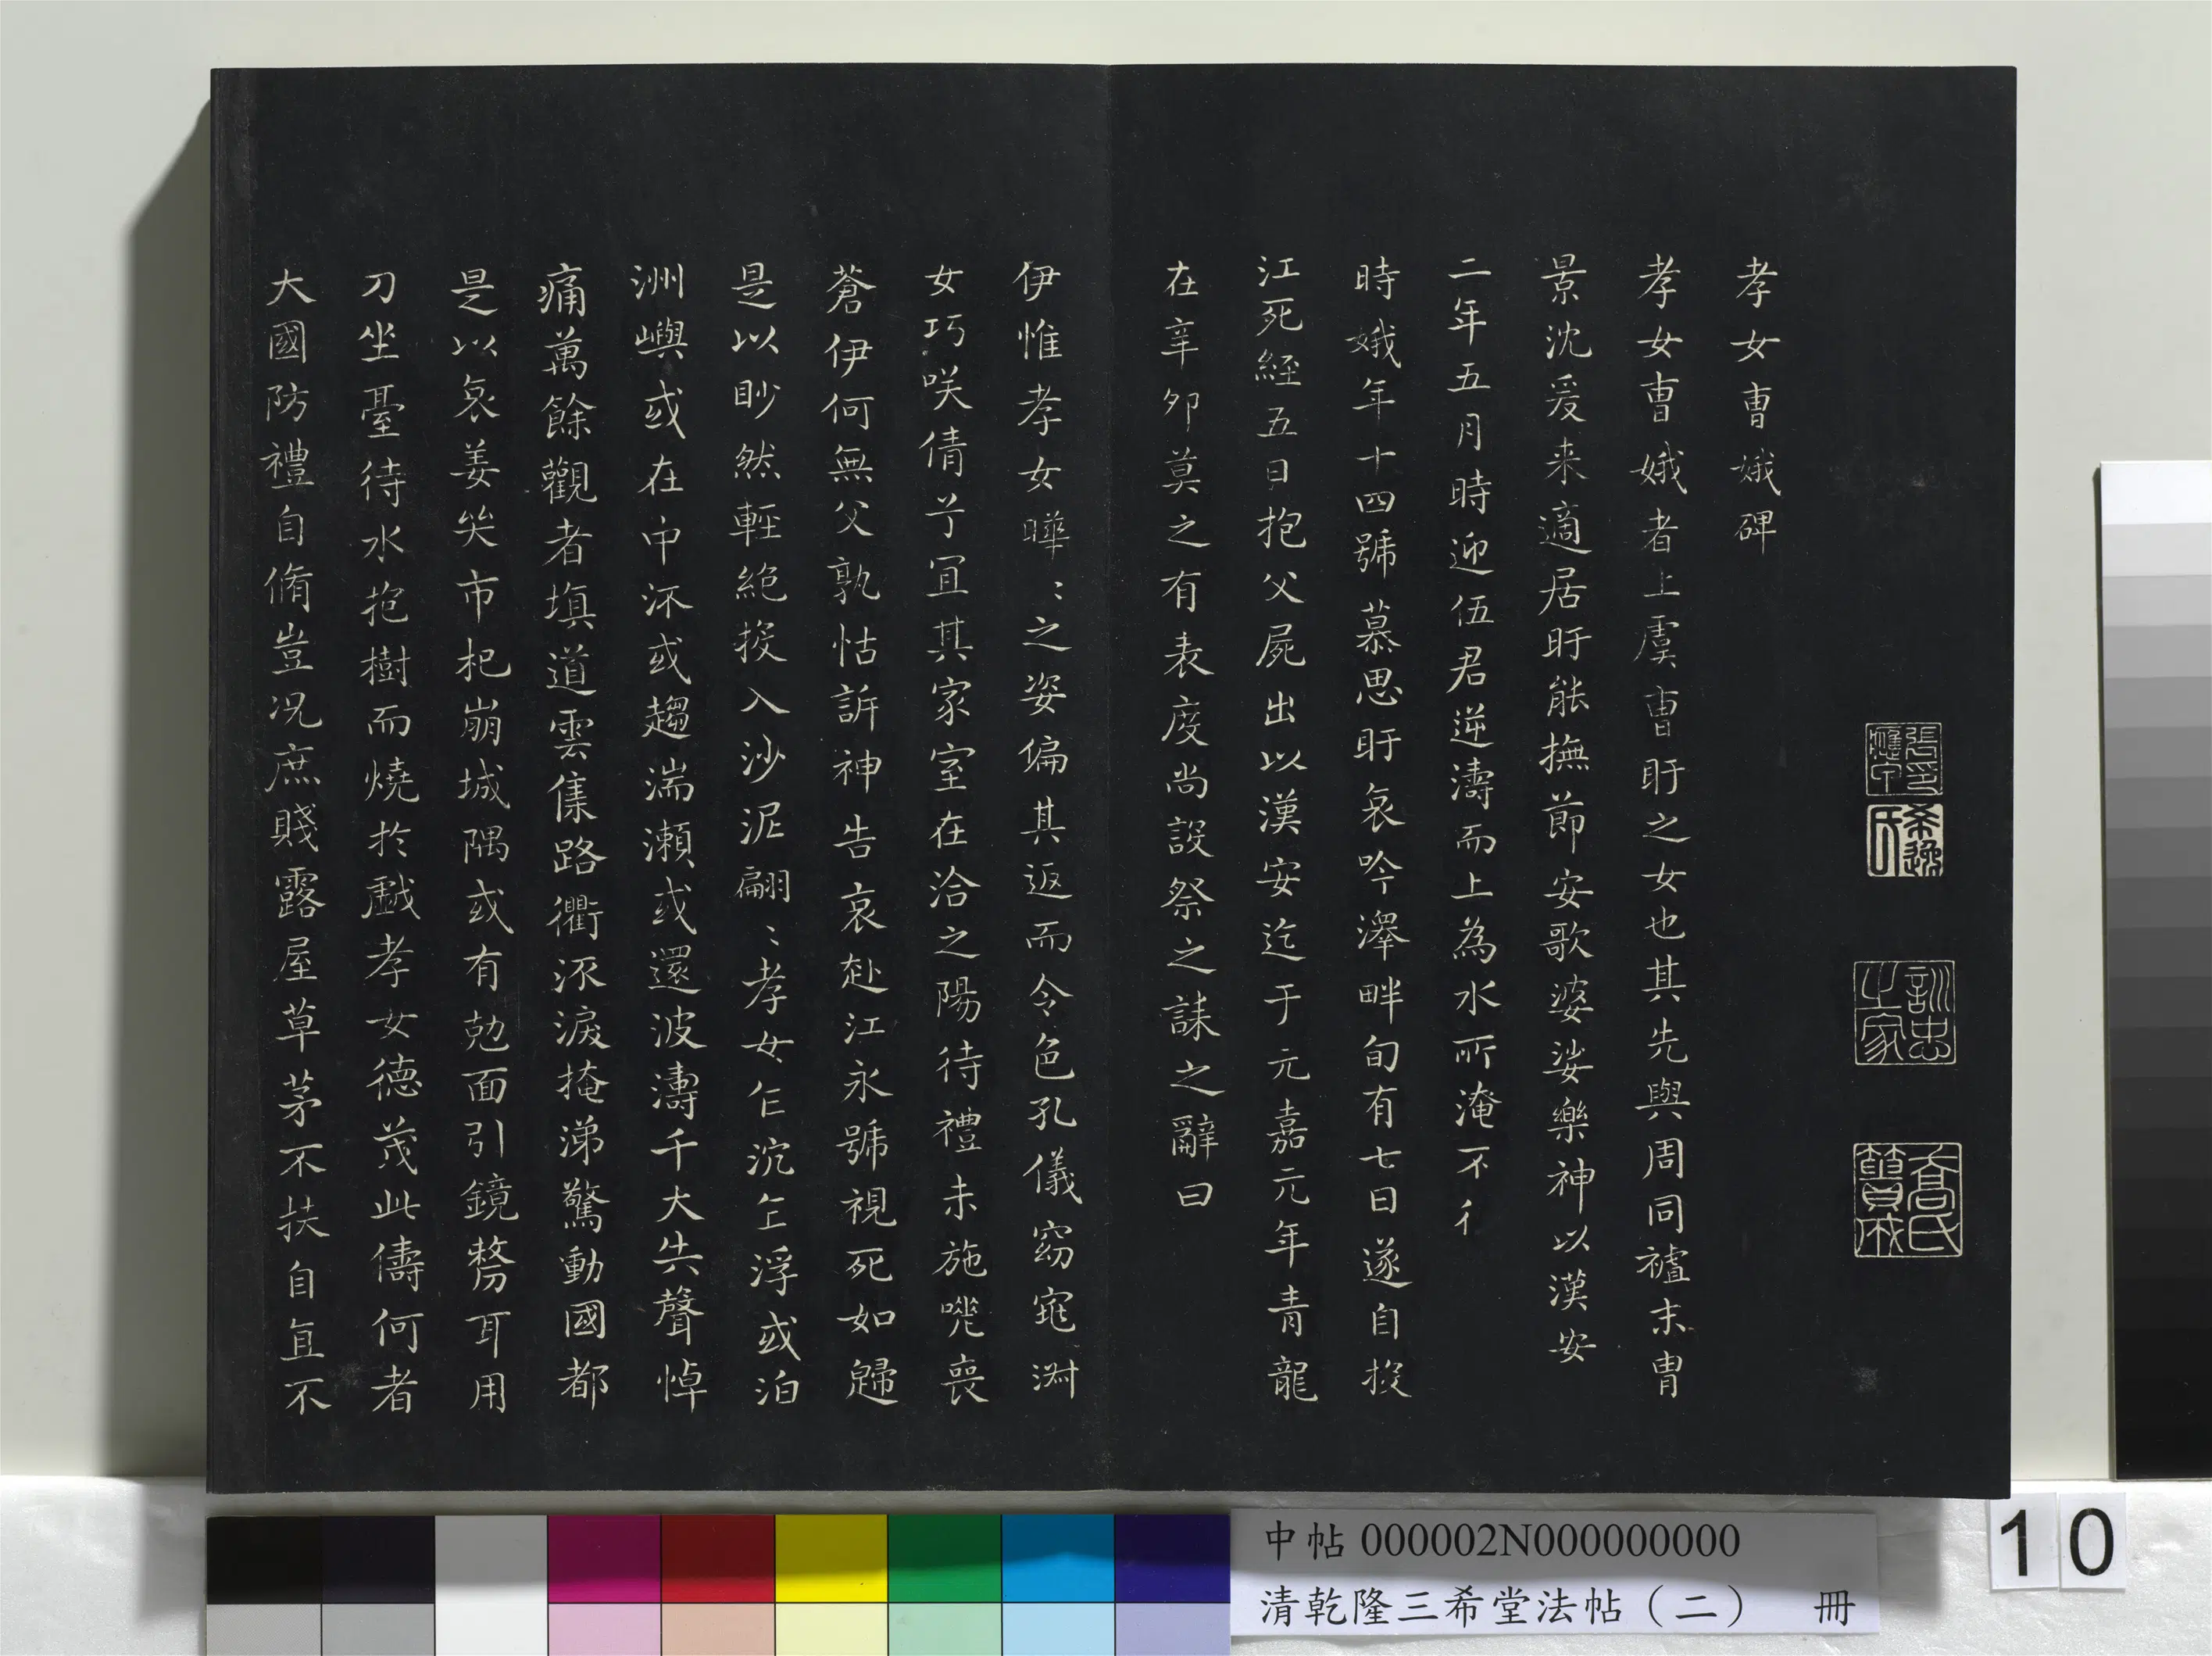 孝女曹娥碑
孝女曹娥者上虞曹盱之女也其先與周同祖末胄
景沈爰来適居盱能撫節安歌婆娑樂神以漢安
二年五月時迎伍君逆濤而上為水所淹不得
時娥年十四號慕思盱哀吟澤畔旬有七日遂自投
江死經五日抱父屍出以漢安迄于元嘉元年青龍
在辛卯莫之有表度尚設祭之誄之辭曰
伊惟孝女曄〻之姿偏其返而令色孔儀窈窕淑
女巧咲倩兮宜其家室在洽之陽待禮未施嗟喪
蒼伊何無父孰怙訴神告哀赴江永號視死如歸
是以眇然輕絕投入沙泥翩〻孝女乍沉乍浮或泊
洲嶼或在中流或趨湍瀨或還波濤千夫失聲悼
痛萬餘觀者填道雲集路衢流淚掩涕驚動國都
是以哀姜哭市杞崩城隅或有尅面引鏡剺耳用
刀坐臺待水抱樹而燒於戲孝女德茂此儔何者
大國防禮自脩豈況庶賤露屋草茅不扶自直不
訓忠之家
喬氏簣成
中帖 000002N000000000
清乾隆三希堂法帖（二） 冊
10